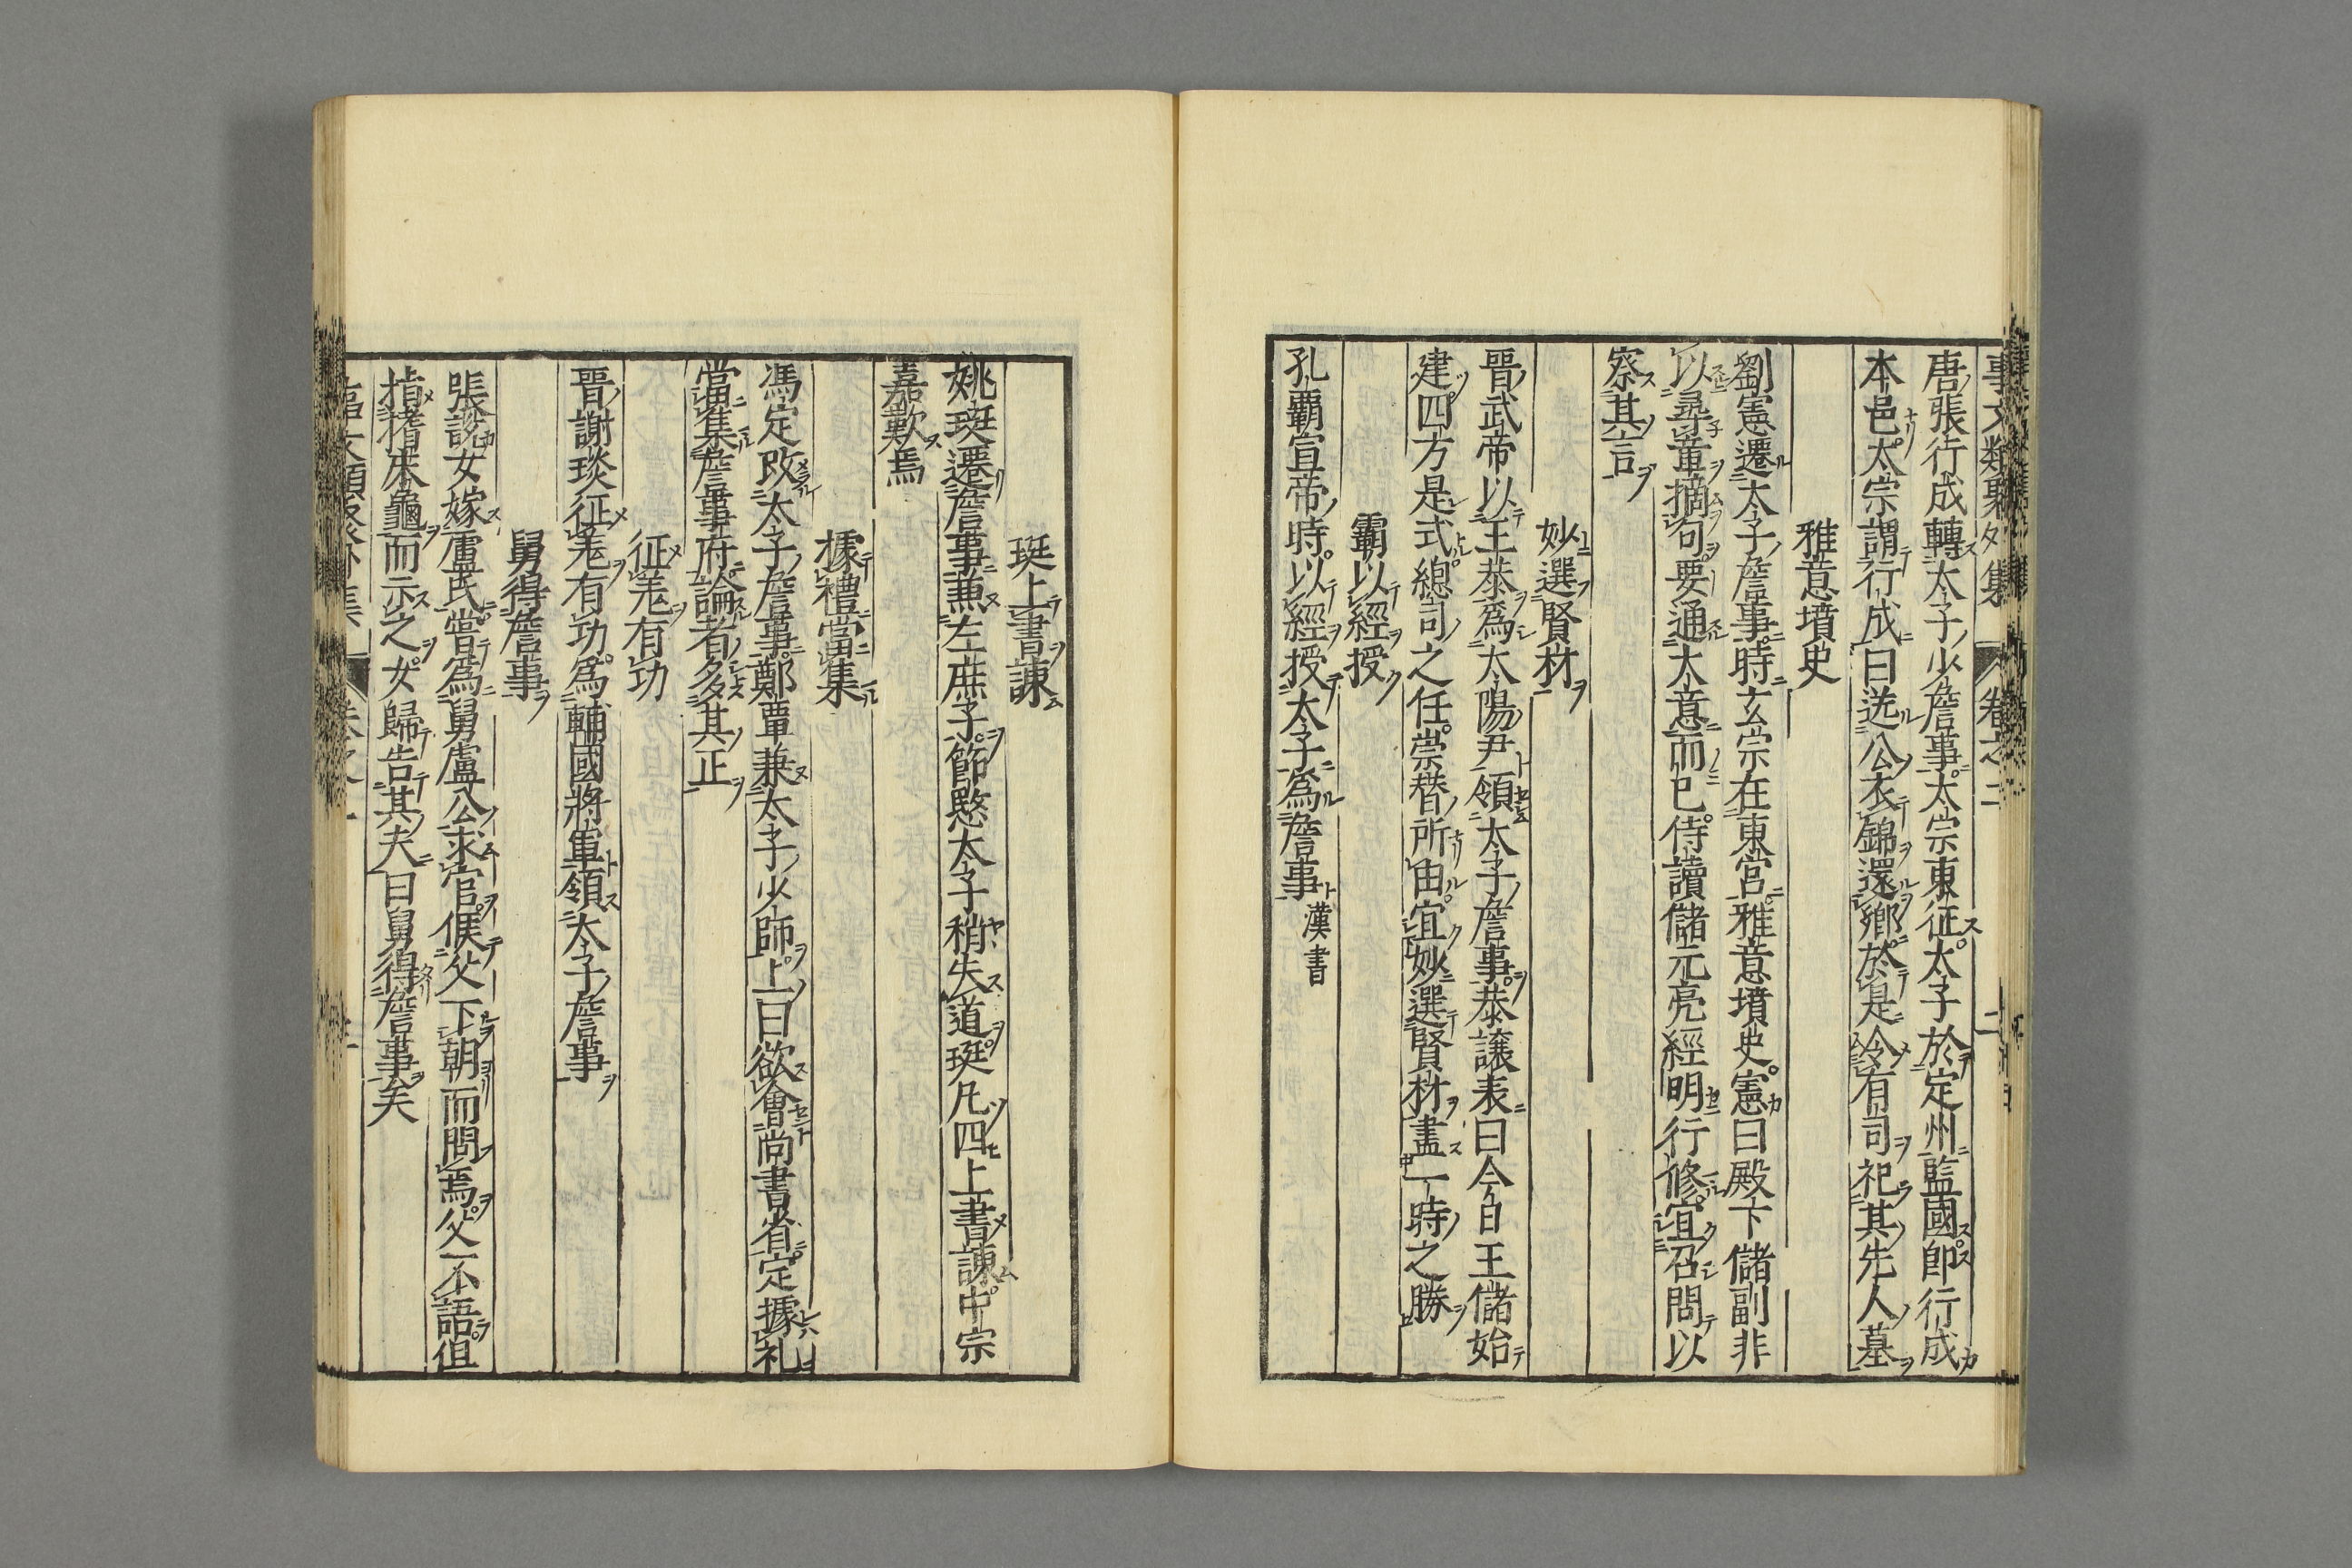 事文類聚外集 卷之二 二
唐張行成轉太子少詹事太宗東征太子於定州監國即行成
本邑太宗謂行成曰送公衣錦還鄉於是令有司祀其先人墓
雅意墳史
劉憲遷太子詹事時玄宗在東宮雅意墳史憲曰殿下儲副非
以尋章摘句要通大意而已侍讀儲元亮經明行修宜召問以
察其言
妙選賢材
晋武帝以王恭為太陽尹領太子詹事恭讓表曰今日王儲始
建四方是式總司之任崇替所由宜妙選賢材盡一時之勝
霸以經授
孔霸宣帝時以經授太子為詹事漢書
珽上書諫
姚珽遷詹事兼左庶子節愍太子稍失道珽凡四上書諫中宗
嘉歎焉
據禮當集
馮定改太子詹事鄭覃兼太子少師上曰欲會尚書省定據礼
當集詹事府論者多其正
征羗有功
晋謝琰征羗有功為輔國將軍領太子詹事
舅得詹事
張說女嫁盧氏嘗為舅盧公求官候父下朝而問焉父不語但
指搘床龜而示之女歸告其夫曰舅得詹事矣